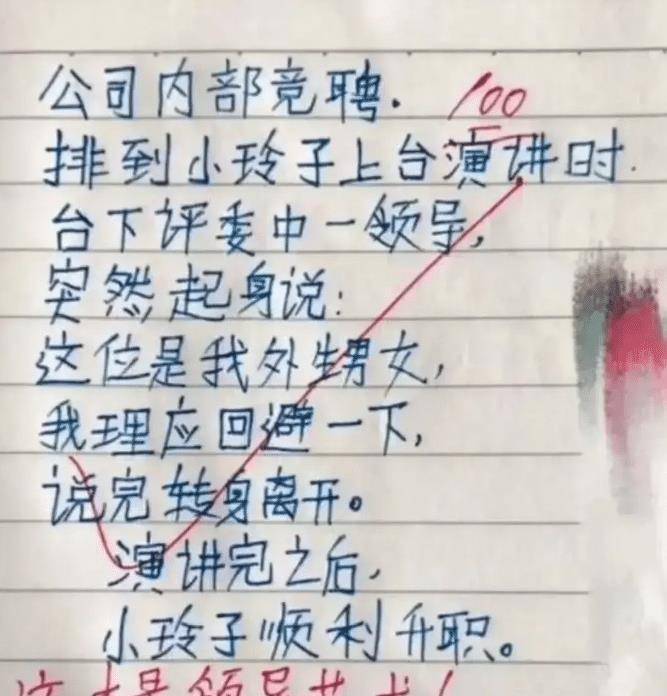 公司内部竞聘.
100
排到小玲子上台演讲时.
台下评委中一领导,
突然起身说:
这位是我外甥女,
我理应回避一下,
说完转身离开。
演讲完之后,
小玲子顺利升职。
这才是领导艺术!